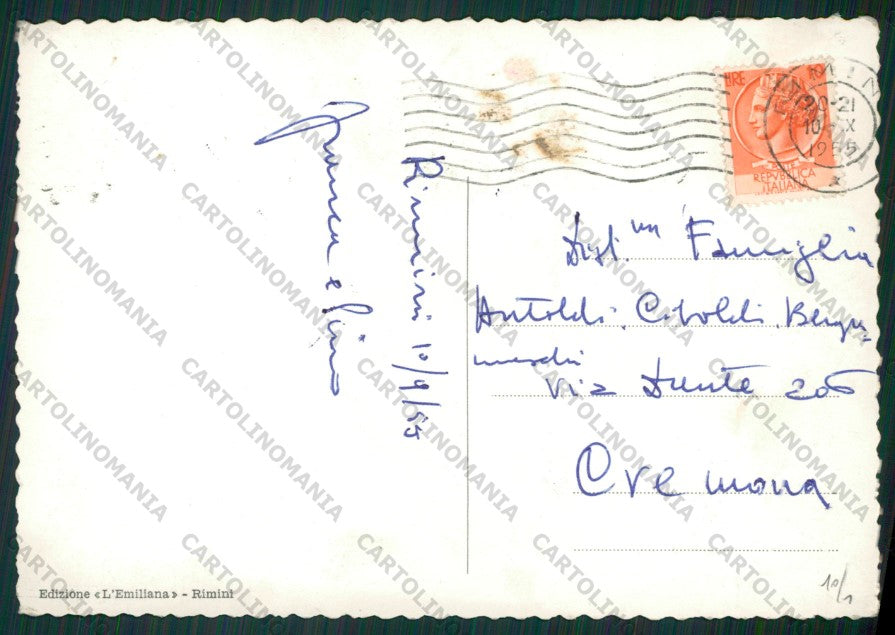 Franca e Pino
Rimini 10/9/55
LIRE
20-21
1955
REPVBBLICA
ITALIANA
Dist.ma Famiglia
Antoldi. Ciboldi. Berga-
maschi
Via Dante 206
Cremona
Edizione «L'Emiliana» - Rimini
10/1
CARTOLINOMANIA